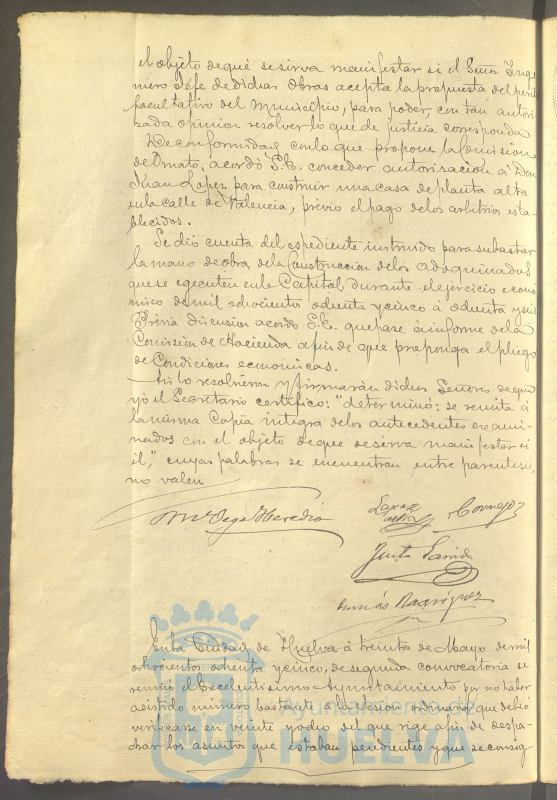 el objeto de qué se sirva manifestar si el Señor Inge
niero Jéfe de dichas obras acepta la propuesta del perito
facultativo del municipio, para poder, con tan autori
zada opinion resolver lo que de justicia corresponda
De conformidad con lo que propone la Comision
de Ornato, acordó S.E. conceder autorizacion á Don
Juan Lopez para construir una casa de planta alta
en la calle de Valencia, previo el pago de los arbitrios esta-
blecidos.
Se dió cuenta del espediente instruido para subastar
la mano de obra de la Construccion de los adoquinados
que se egecuten en la Capital durante el ejercicio econó
mico de mil ochocientos ochenta y cinco á ochenta y seis
Prévia discusion acordó S.E. que pase á informe de la
Comision de Hacienda a fin de que proponga el pliego
de Condiciones economicas.
Asi lo resolvieron y firmarán dichos Señores de que
yo el Secretario certifico: "determinó: se remita á
la misma Copia integra de los antecedentes exami-
nados con el objeto de que se sirva manifestar si
el," cuyas palabras se encuentran entre parentesis,
no valen
Vega Heredia
Cornejo
Justo Garrido
Tomás Rodríguez
En la Ciudad de Huelva á treinta de Mayo de mil
ochocientos ochenta y cinco, de segunda convocatoria se
reunió el Excelentísimo Ayuntamiento por no haber
asistido número bastante á la sesion ordinaria que debió
verificarse en veinte y ocho del que rige a fin de despa-
char los asuntos que estaban pendientes y que se consig
Ayuntamiento de
HUELVA